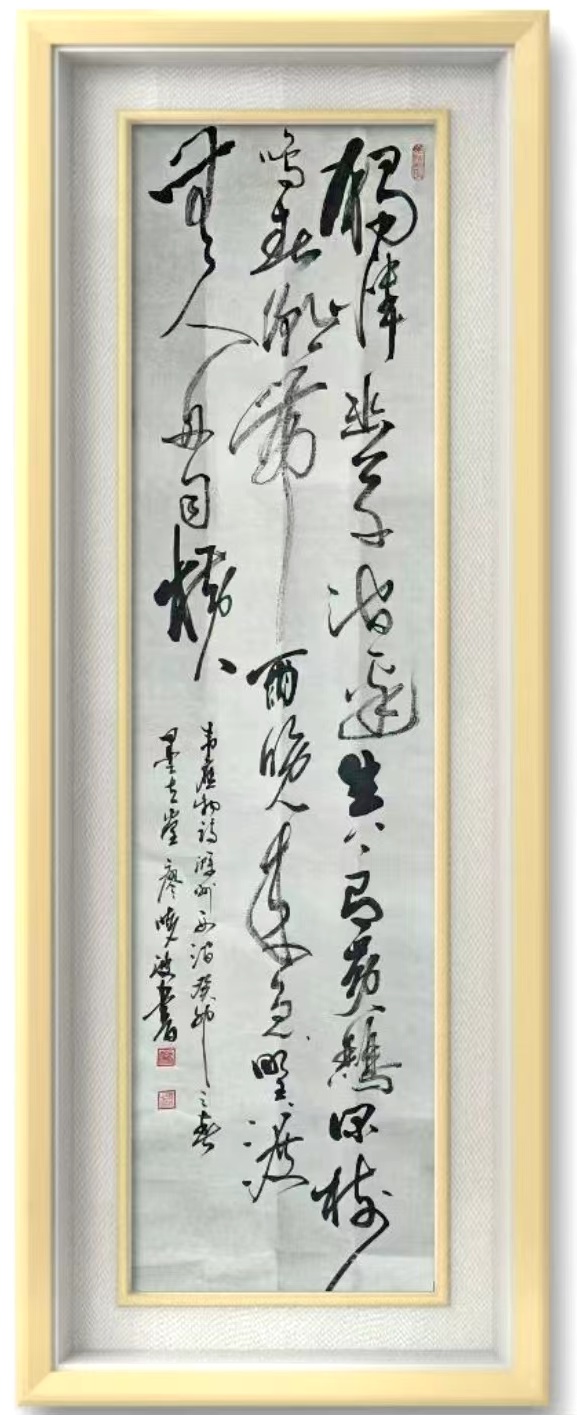 獨憐幽草澗邊生上有黃鸝深樹
鳴春潮帶雨晚來急野渡
無人舟自橫
韋應物詩滁州西澗癸卯之春
墨堂廖曉波書